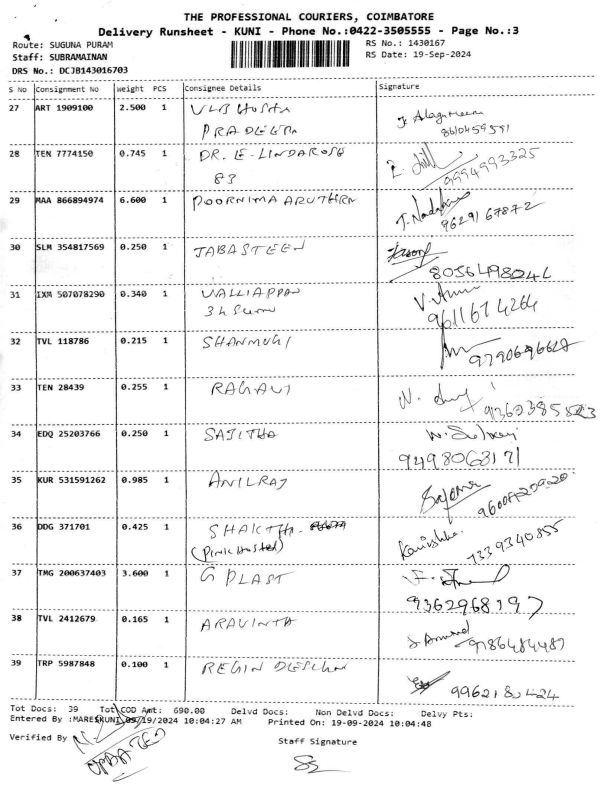 THE PROFESSIONAL COURIERS, COIMBATORE
Delivery Runsheet - KUNI - Phone No.:0422-3505555 - Page No.:3
Route: SUGUNA PURAM RS No.: 1430167
Staff: SUBRAMAINAN RS Date: 19-Sep-2024
DRS No.: DCJB143016703
S No Consignment No Weight PCS Consignee Details Signature
27 ART 1909100 2.500 1 VLB HOSTA
PRADEEBA
8610459591
28 TEN 7774150 0.745 1 DR. E-LINDAROSE
83 9994993325
29 MAA 866894974 6.600 1 POORNIMA ARUTHRA
9629167872
30 SLM 354817569 0.250 1 JABASTEEN
31 IXM 507078290 0.340 1 VALLIAPPAN
9611674264
32 TVL 118786 0.215 1 SHANMUGI
33 TEN 28439 0.255 1 RAGAVI
34 EDQ 25203766 0.250 1 SAJITHA
9498063171
35 KUR 531591262 0.985 1 ANILRAJ
36 DDG 371701 0.425 1 SHAKTHI
(PINK HOSTEL) 7339340855
37 TMG 200637403 3.600 1 G PLAST
9362968197
38 TVL 2412679 0.165 1 ARAVINTH
39 TRP 5987848 0.100 1 REGIN
9962180424
Tot Docs: 39 Tot COD Amt: 690.00 Delvd Docs: Non Delvd Docs: Delvy Pts:
Entered By :MARESKUNI 09/19/2024 10:04:27 AM Printed On: 19-09-2024 10:04:48
Verified By Staff Signature
UPDATED